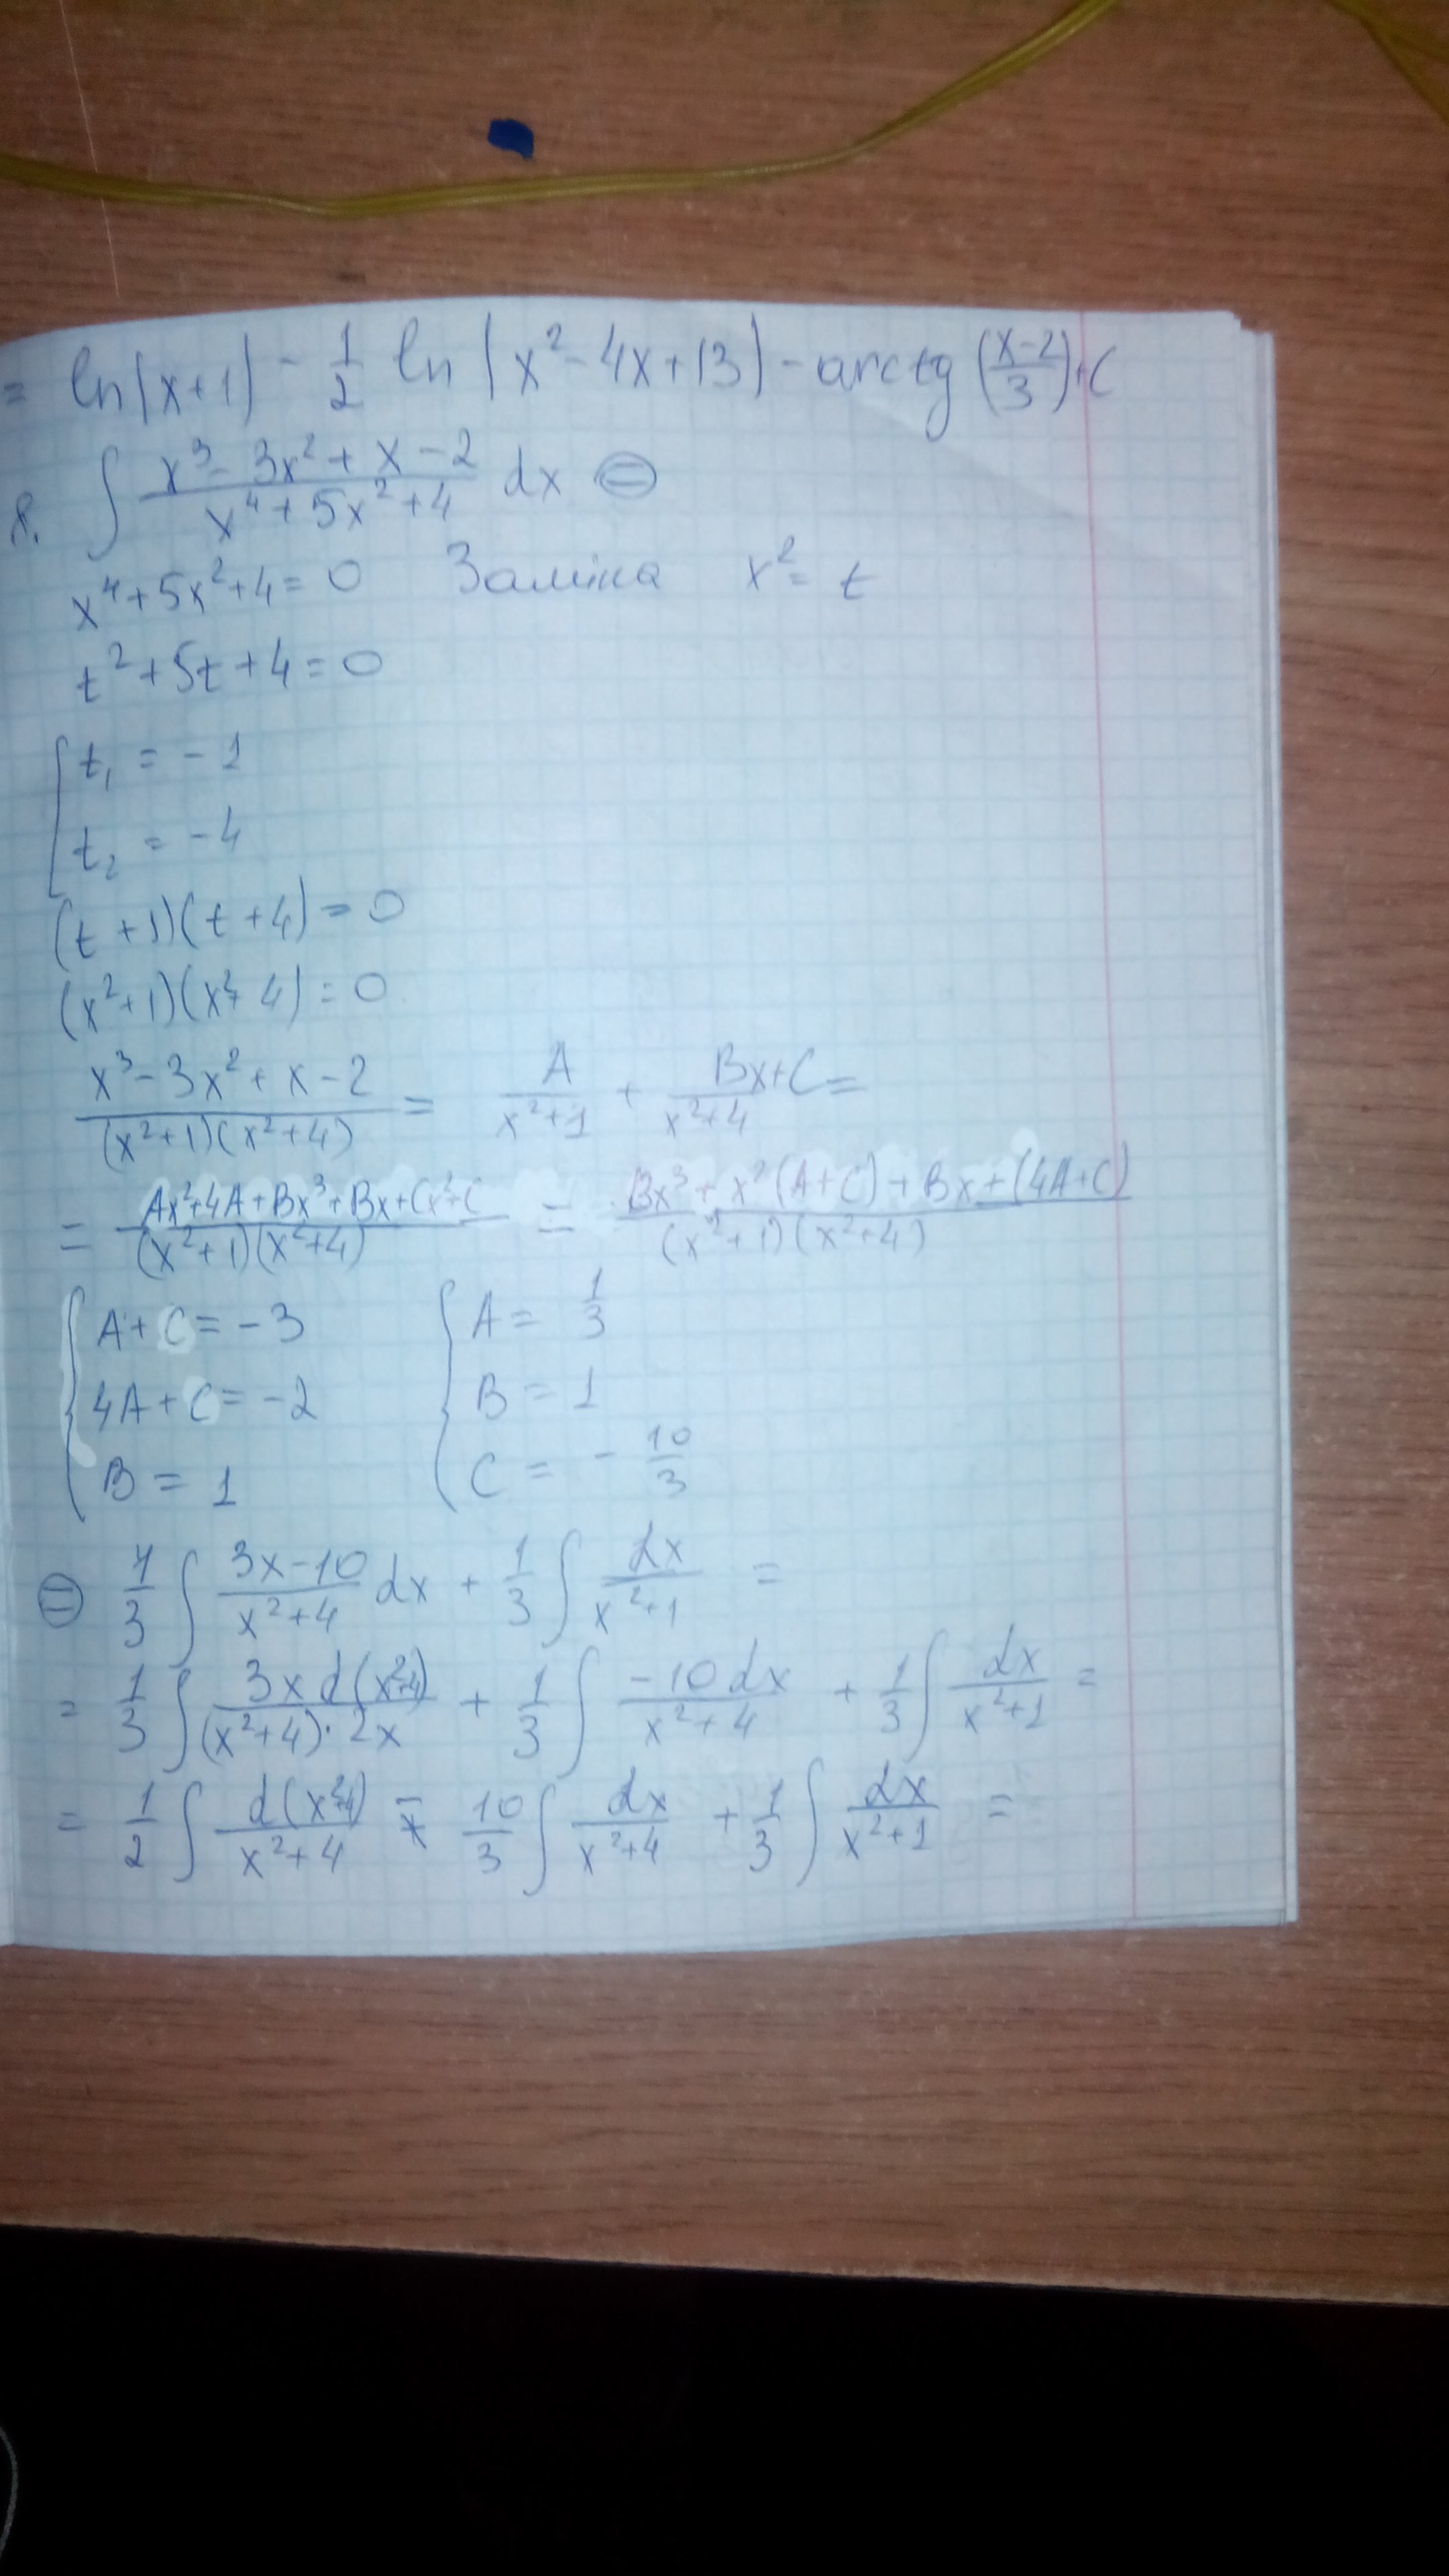 = ln|x+1| - 1/2 ln|x²-4x+13| - arctg((x-2)/3)+C
8. ∫ (x³-3x²+x-2)/(x⁴+5x²+4) dx ⊜
x⁴+5x²+4=0 Заміна x²=t
t²+5t+4=0
[ t₁ = -1
t₂ = -4
(t+1)(t+4)=0
(x²+1)(x²+4)=0
(x³-3x²+x-2)/((x²+1)(x²+4)) = A/(x²+1) + (Bx+C)/(x²+4) =
= (Ax²+4A+Bx³+Bx+Cx²+C)/((x²+1)(x²+4)) = (Bx³+x²(A+C)+Bx+(4A+C))/((x²+1)(x²+4))
{ A+C=-3 { A = 1/3
4A+C=-2 B = 1
B = 1 C = -10/3
⊜ 1/3 ∫ (3x-10)/(x²+4) dx + 1/3 ∫ dx/(x²+1) =
= 1/3 ∫ (3x d(x²+4))/((x²+4)·2x) + 1/3 ∫ (-10dx)/(x²+4) + 1/3 ∫ dx/(x²+1) =
= 1/2 ∫ d(x²+4)/(x²+4) - 10/3 ∫ dx/(x²+4) + 1/3 ∫ dx/(x²+1) =